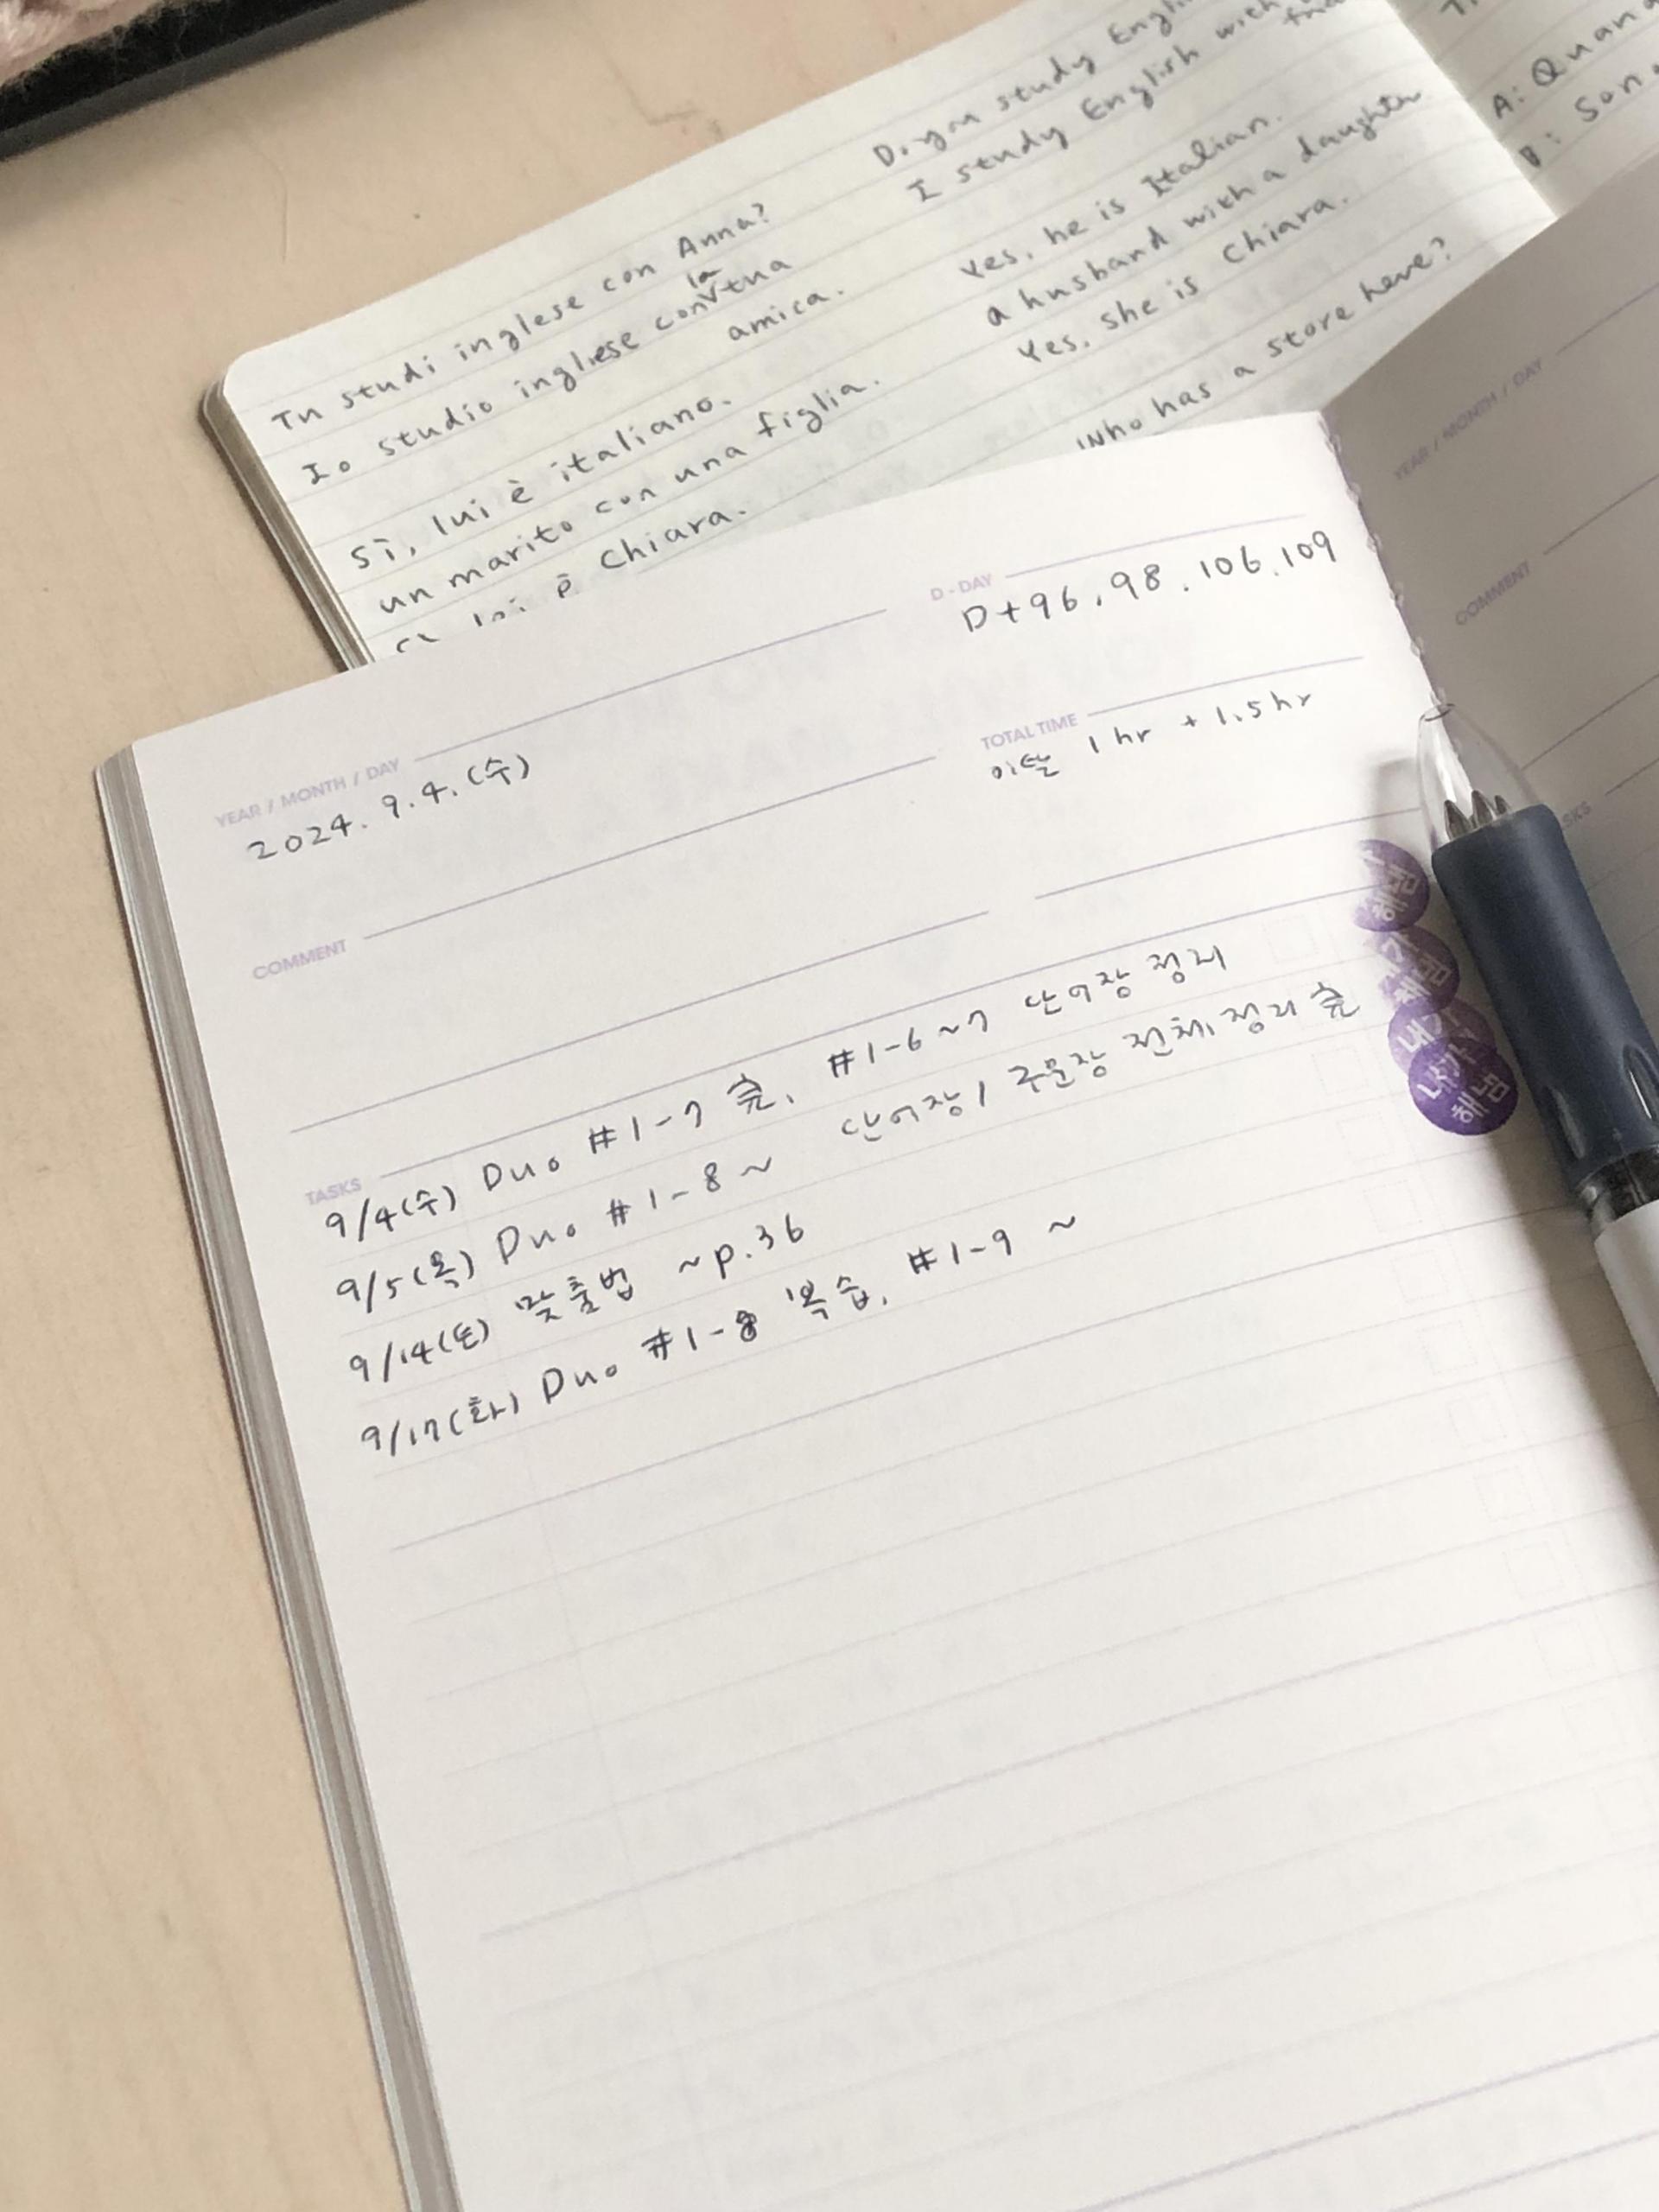 Tu studi inglese con Anna?
Io studio inglese con la tua
amica.
Sì, lui è italiano.
un marito con una figlia.
è Chiara.
D. you study English
I study English with
Yes, he is Italian.
a husband with a daughter.
Yes, she is Chiara.
Who has a store here?
A: Quan
B: Son
YEAR / MONTH / DAY
2024. 9. 4. (수)
D - DAY
D+96, 98. 106. 109
COMMENT
TOTAL TIME
이탈 1 hr + 1.5 hr
TASKS
9/4(수) Duo #1-7 完. #1-6~7 단어장 정리
9/5(목) Duo #1-8 ~ 단어장/구문장 전체 정리 完
9/14(토) 맞춤법 ~p.36
9/17(화) Duo #1-8 복습. #1-9 ~
해냄
내가
해냄
YEAR / MONTH / DAY
COMMENT